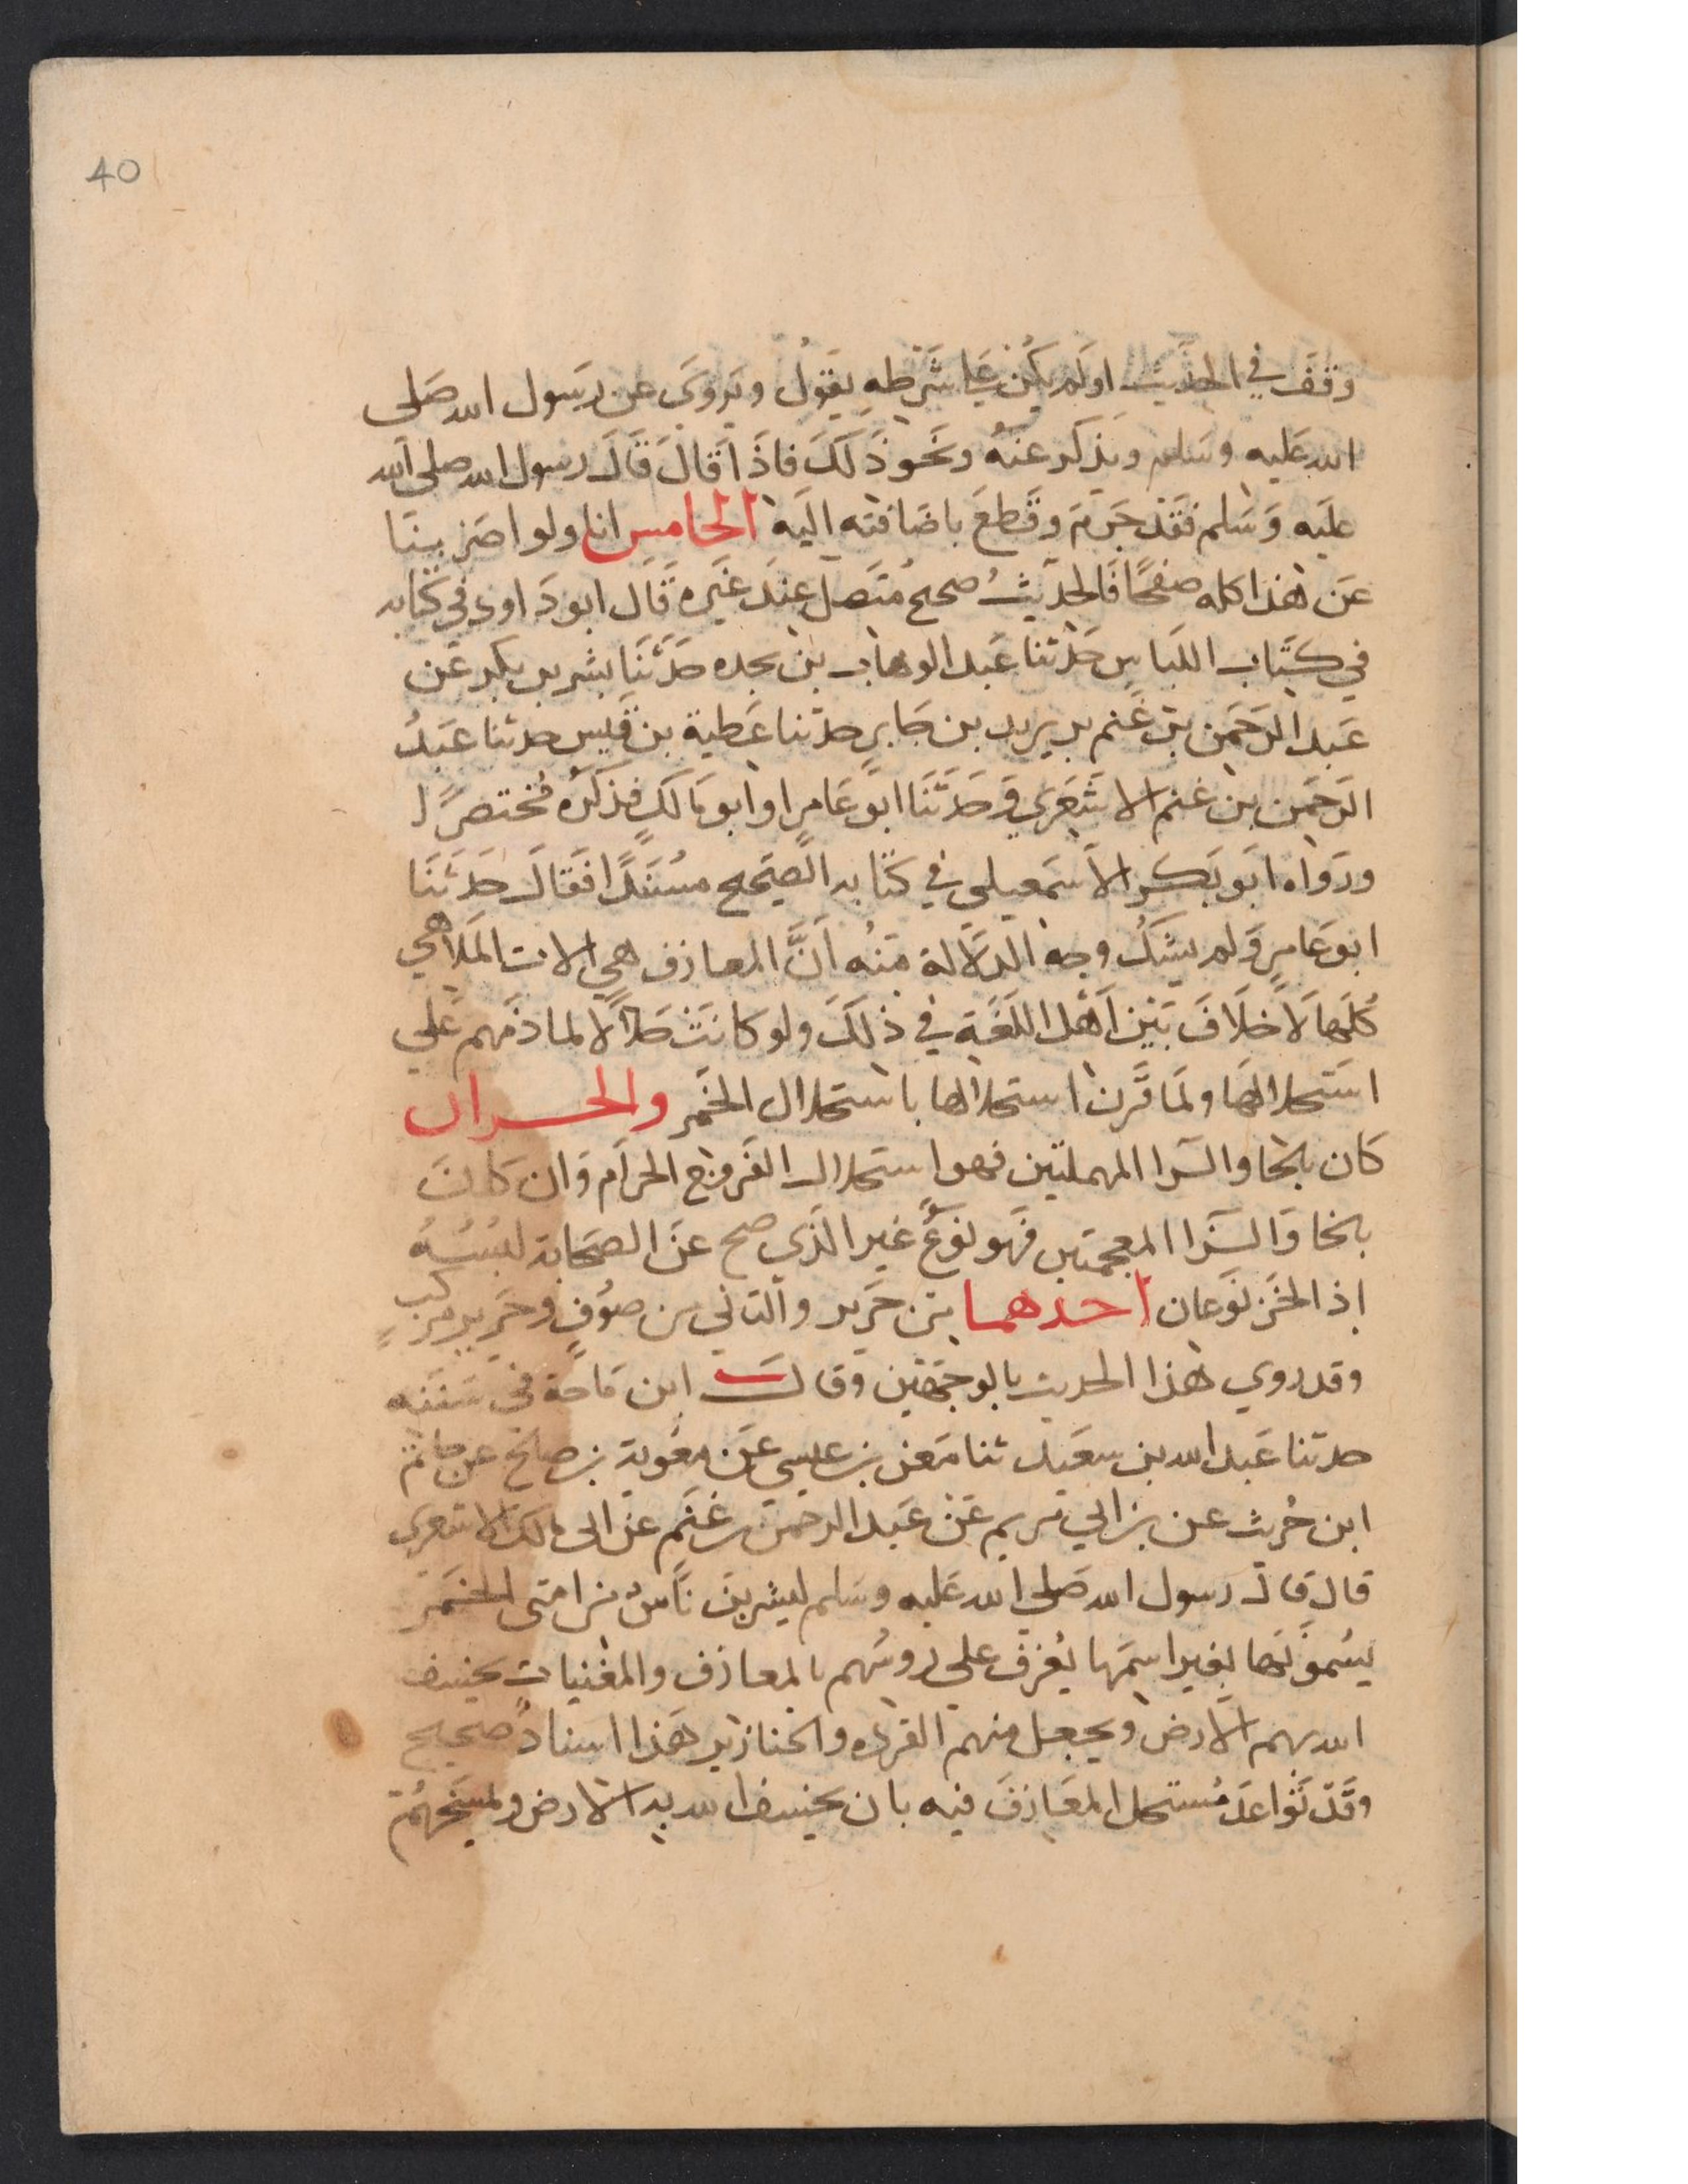 40
وقف في الحديث او لم يكن علي شرطه يقول ويروي عن رسول الله صلى
الله عليه وسلم ويذكر عنه ونحو ذلك فاذا قال قال رسول الله صلى الله
عليه وسلم فقد جزم وقطع باضافته اليه الخامس انا ولو اضربنا
عن هذا كله صفحا فالحديث صحيح متصل عند غيره قال ابو داود في كتابه
في كتاب اللباس حدثنا عبد الوهاب بن نجده حدثنا بشر بن بكر عن
عبد الرحمن بن غنم بن يزيد بن جابر حدثنا عطية بن قيس حدثنا عبد
الرحمن بن غنم الاشعري وحدثنا ابو عامر او ابو مالك فذكره مختصرا
ورواه ابو بكر الاسمعيلي في كتابه الصحيح مسندا فقال حدثنا
ابو عامر ولم يشك وجه الدلالة منه ان المعازف هي الات الملاهي
كلها لا خلاف بين اهل اللغة في ذلك ولو كانت حلالا لما ذمهم علي
استحلالها ولما قرن استحلالها باستحلال الخمر والحران
كان بالحا والرا المهملتين فهو استحلال الفروج الحرام وان كان
بالخا والزا المعجمتين فهو نوع غير الذي صح عن الصحابة لبسه
اذ الخز نوعان احدهما من حرير والثاني من صوف وحرير مركب
وقد روي هذا الحديث بالوجهين وقال ابن ماجة في سننه
حدثنا عبد الله بن سعيد ثنا معن بن عيسى عن معوية بن صالح عن حاتم
ابن حريث عن بن ابي مريم عن عبد الرحمن بن غنم عن ابي مالك الاشعري
قال قال رسول الله صلى الله عليه وسلم ليشربن ناس من امتي الخمر
يسمونها بغير اسمها يعزف على روسهم بالمعازف والمغنيات يخسف
الله بهم الارض ويجعل منهم القردة والخنازير هذا اسناد صحيح
وقد تواعد مستحل المعازف فيه بان يخسف الله به الارض ويمسخهم